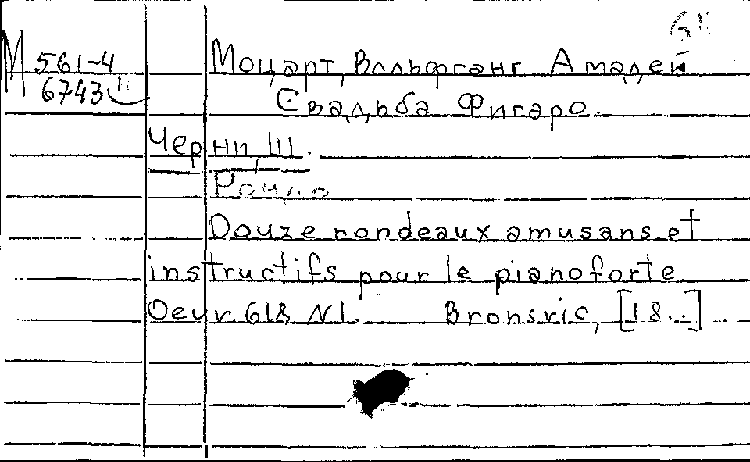 М 561-4
6743
Моцарт, Вольфганг Амадей
Свадьба Фигаро.
Черни, Ш.
Рондо
Douze rondeaux amusans et
instructifs pour le pianoforte
Oeuvr. 618 N1. Bronsvic, [18..]